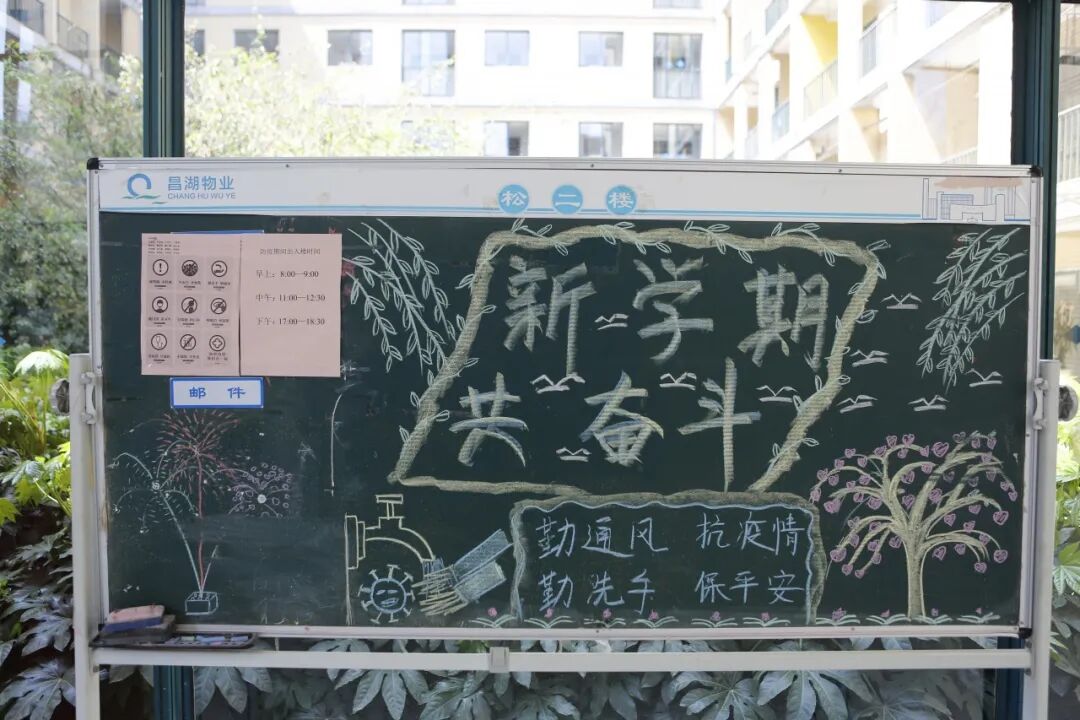 昌湖物业
CHANG HU WU YE
松二楼
防疫期间出入楼时间
早上：8:00—9:00
中午：11:00—12:30
下午：17:00—18:30
邮件
新学期
共奋斗
勤通风 抗疫情
勤洗手 保平安